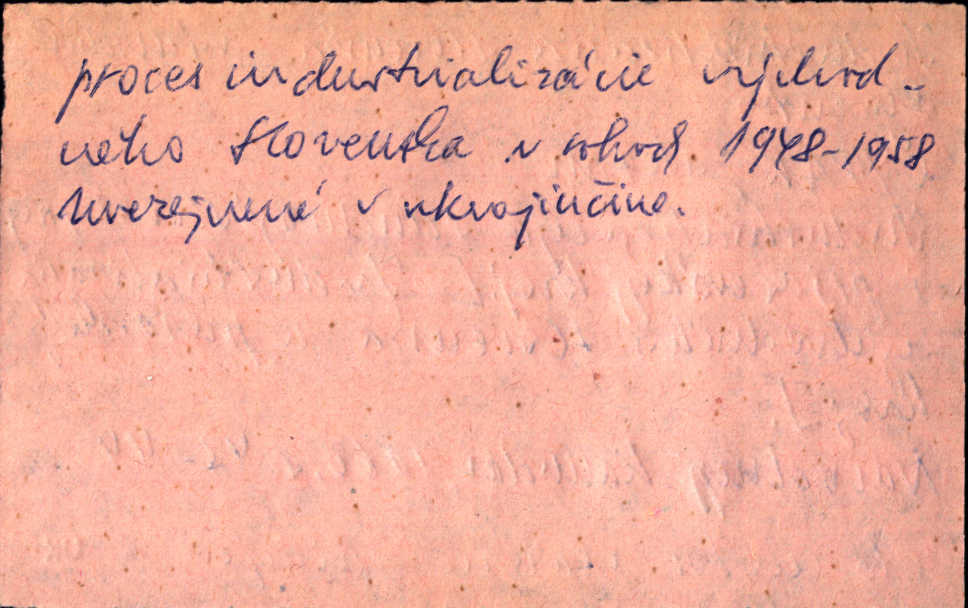 proces industrializácie východ-
ného Slovenska v rokoch 1948-1958
Uverejnené v ukrajinčine.